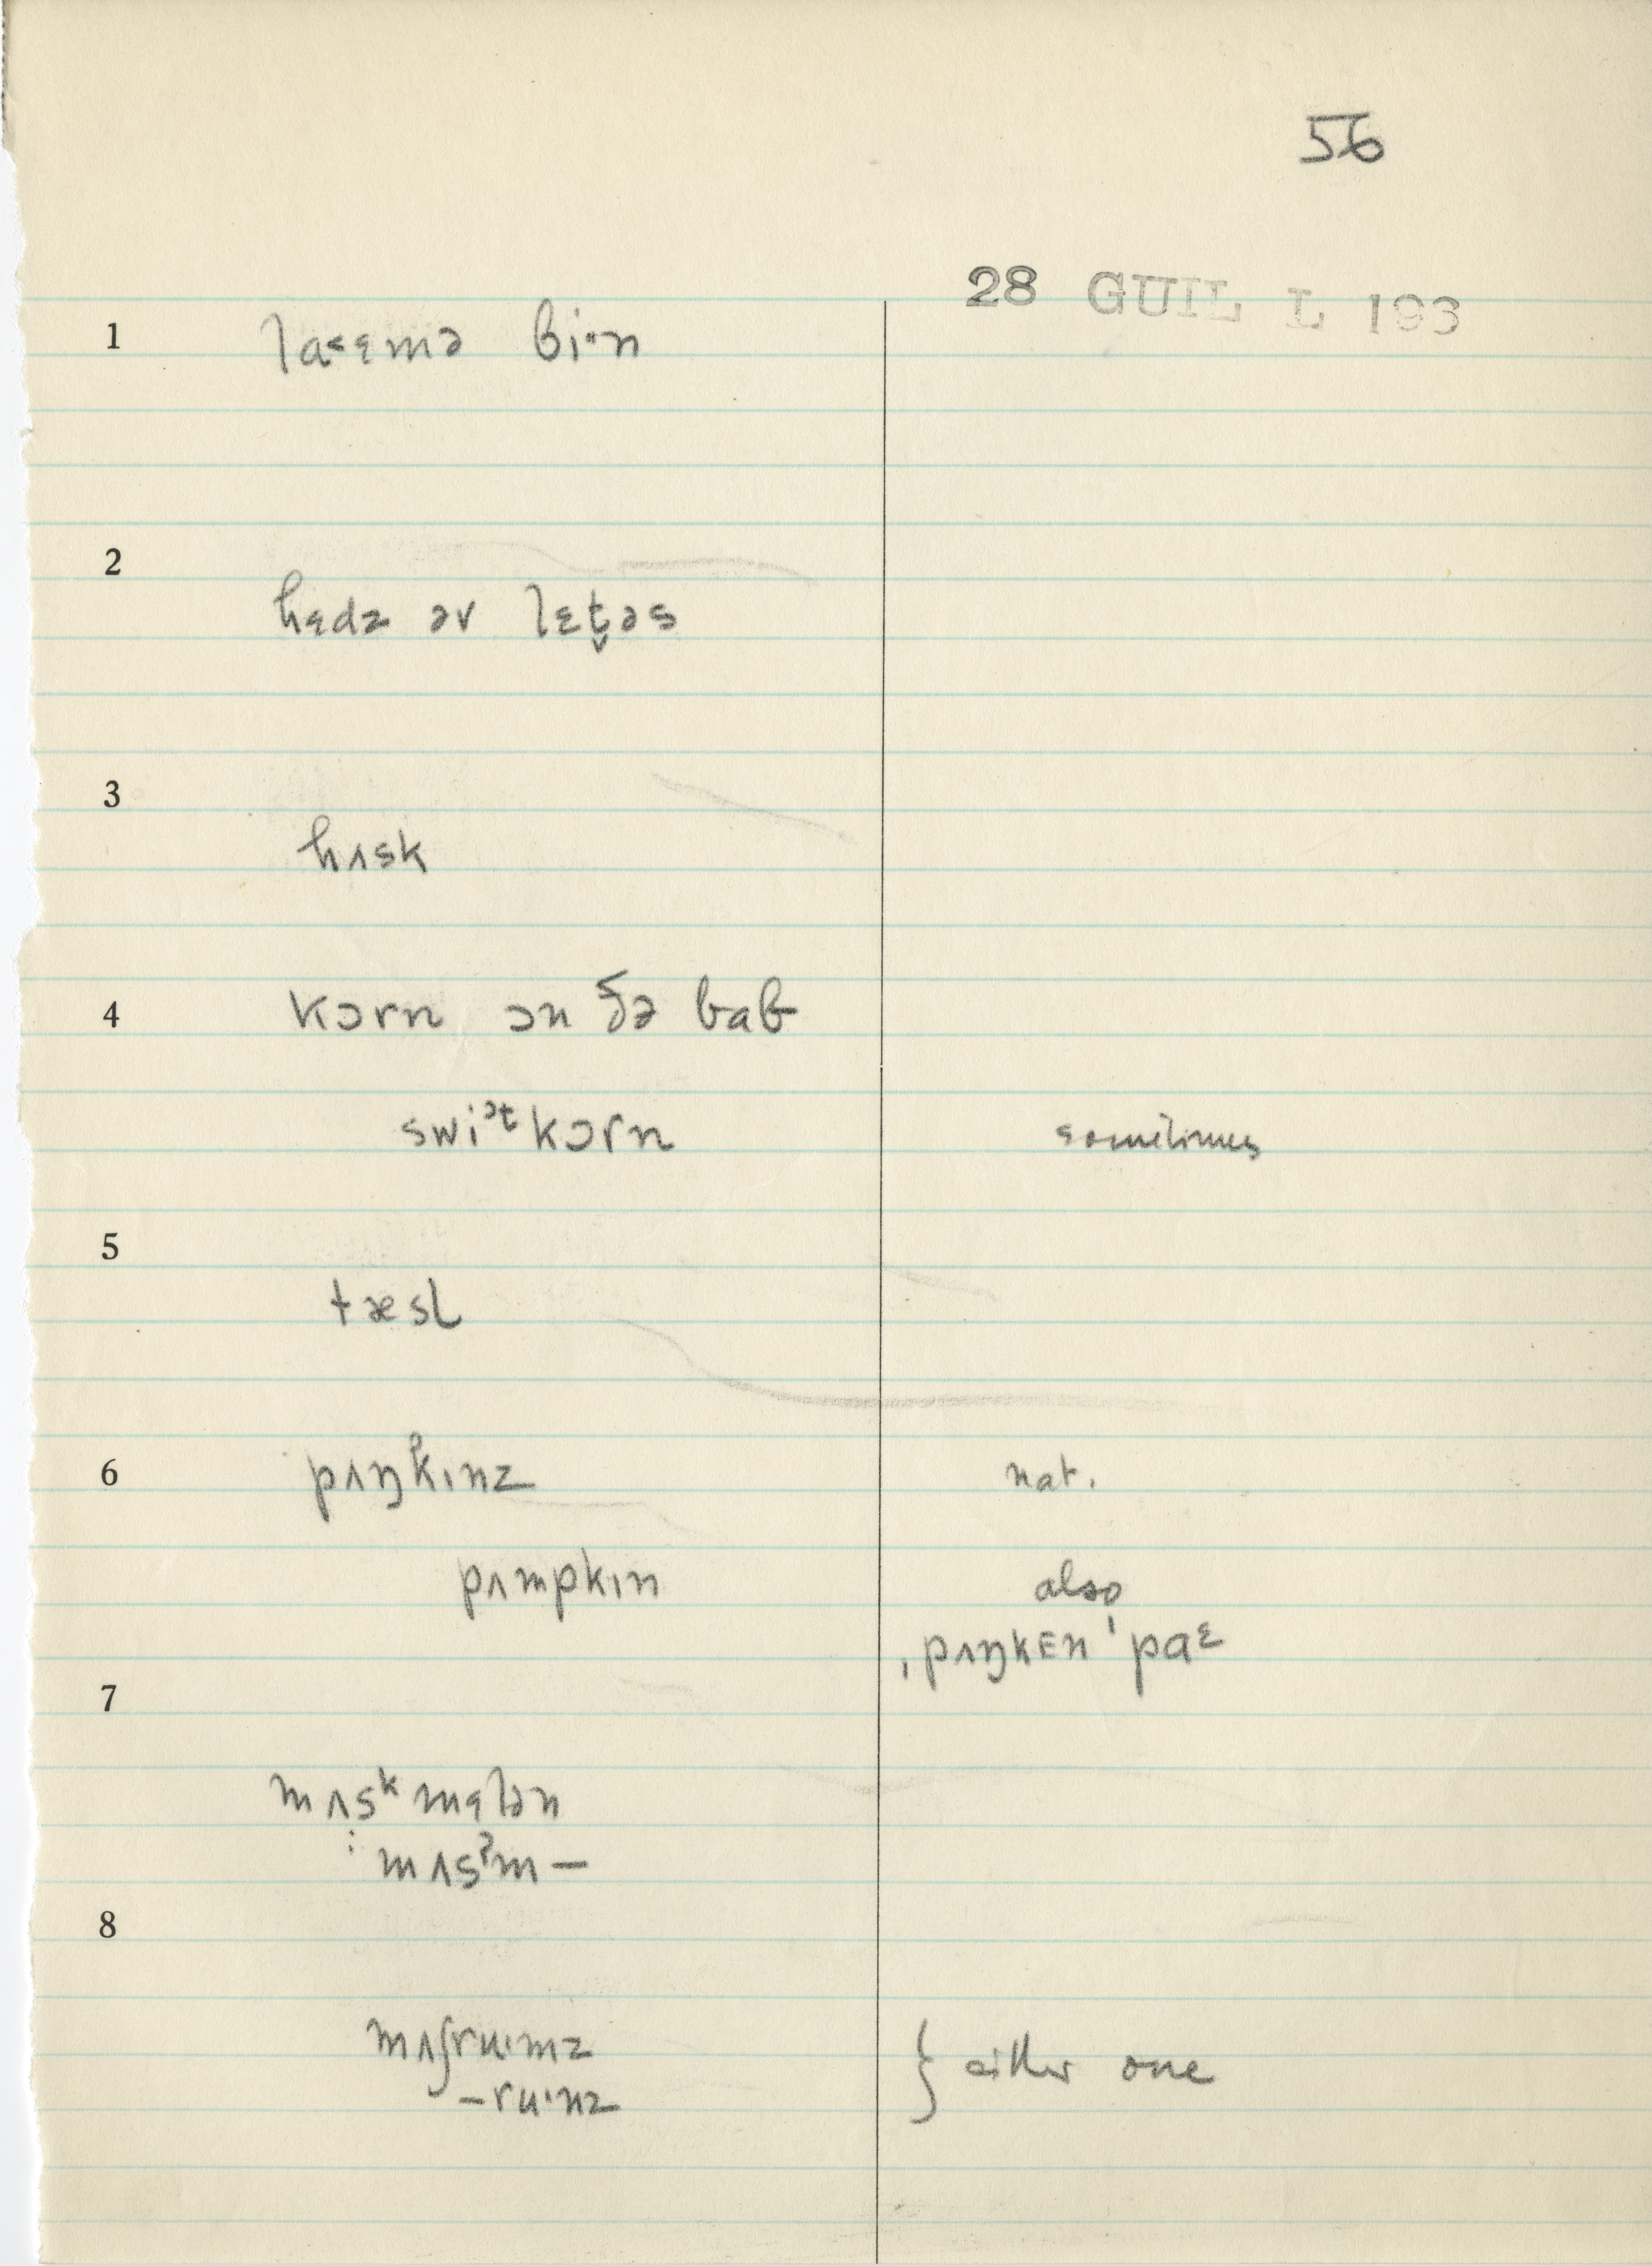 56
28 GUIL L 193
1 la˂ɛmə bi·n
2
hɛdz əv lɛt̬əs
3
hʌsk
4 kɔrn ɔn ðə bab
swiᵊᵗkɔrn sometimes
5
tæsl
6 pʌŋkɪnz nat.
pʌmpkɪn also
ˌpʌŋkEn ˈpaᵋ
7
mʌsᵏmɛlən
: mʌsˀm—
8
mʌʃru·mz } either one
—ru·nz